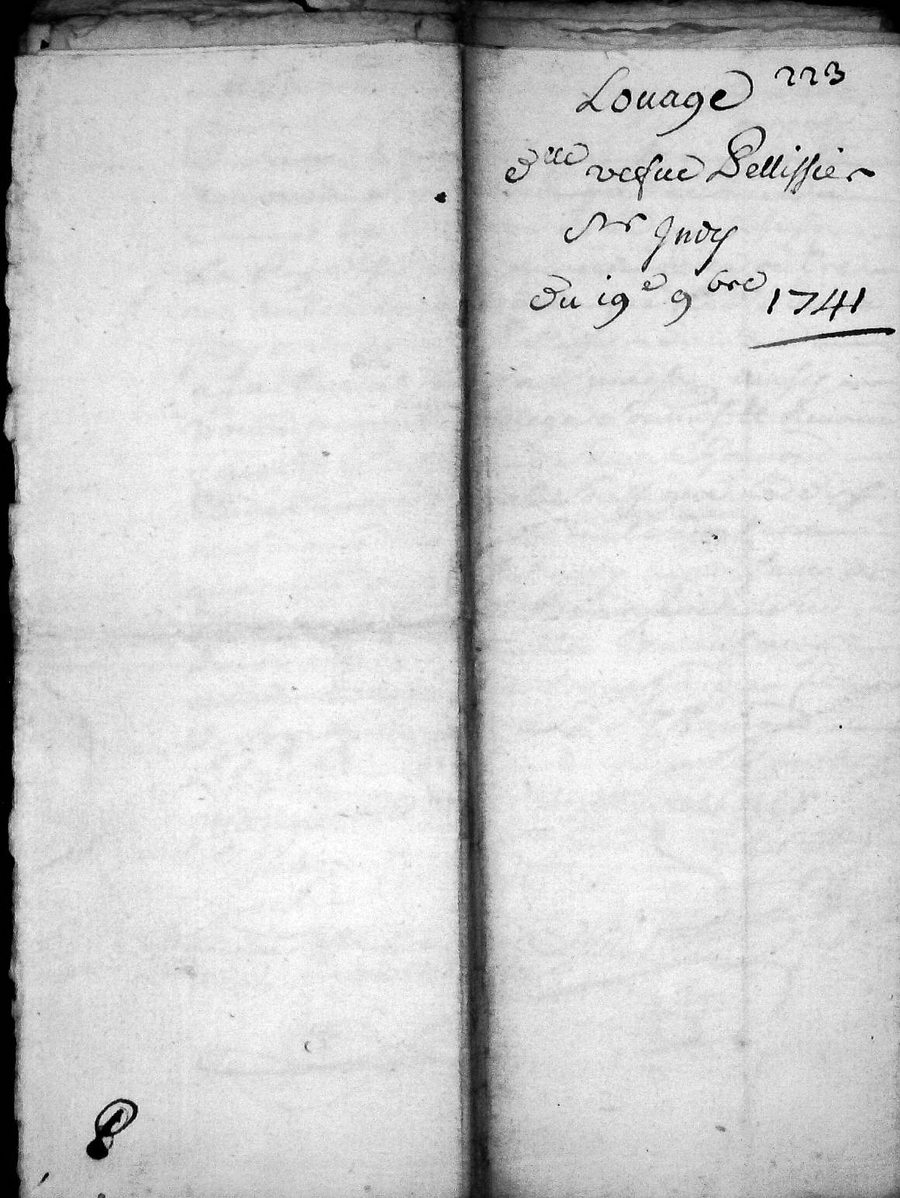 Louage 223
dlle vefue Pellissier
Sr Indy
du 19e 9bre 1741